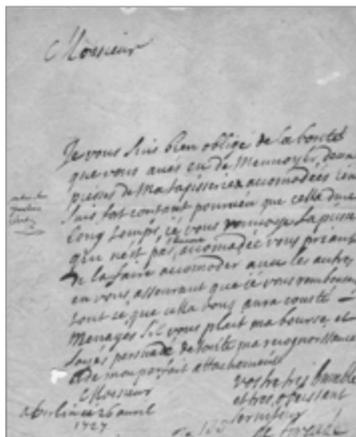 Monsieur
Je vous suis bien obligé de la bonté
que vous avés eu de m'envoyer deux
pieces de ma tapisserie accomodées j'en
suis fort content pourvieu que cella dure
long temps, je vous renvoye la piece
qui n'est pas accomodée vous priant
de la faire accomoder avec les autres
en vous assurant que je vous rembourse
tout ce que cella vous aura cousté
Menagés s'il vous plait ma bourse, et
soyés persuadé de toute ma recognoissance
et de mon parfait attachement
Monsieur
vostre tres humble
et tres obeissant
serviteur
a Berlin ce 26 avril
1727